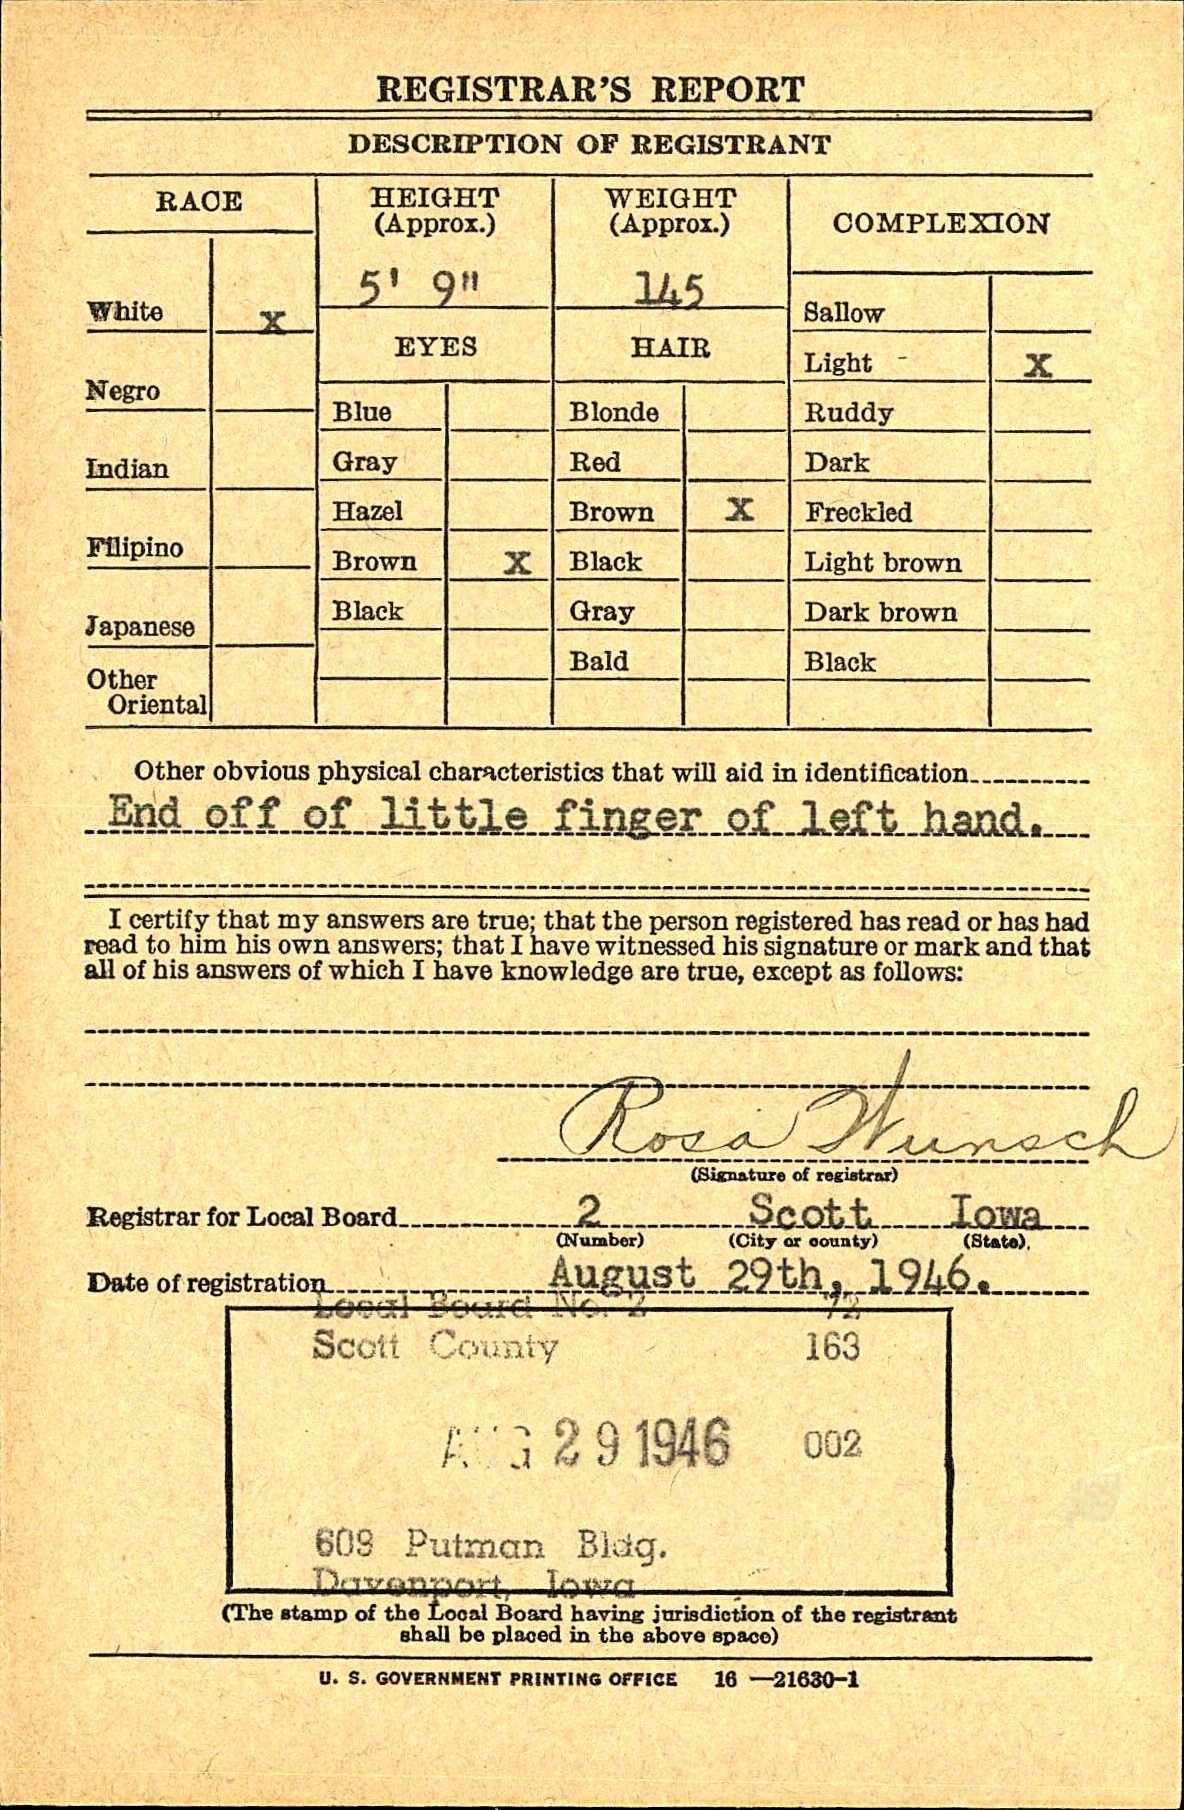 REGISTRAR'S REPORT
DESCRIPTION OF REGISTRANT
RACE
HEIGHT
(Approx.)
WEIGHT
(Approx.)
COMPLEXION
5' 9"
145
White x
Sallow
EYES
HAIR
Light - X
Negro
Blue
Blonde
Ruddy
Indian
Gray
Red
Dark
Hazel
Brown X
Freckled
Filipino
Brown X
Black
Light brown
Japanese
Black
Gray
Dark brown
Bald
Black
Other
Oriental
Other obvious physical characteristics that will aid in identification
End off of little finger of left hand.
I certify that my answers are true; that the person registered has read or has had
read to him his own answers; that I have witnessed his signature or mark and that
all of his answers of which I have knowledge are true, except as follows:
Rosa Wunsch
(Signature of registrar)
Registrar for Local Board 2 Scott Iowa
(Number) (City or county) (State)
Date of registration August 29th, 1946.
Local Board No. 2 72
Scott County 163
AUG 29 1946 002
609 Putman Bldg.
Davenport, Iowa
(The stamp of the Local Board having jurisdiction of the registrant
shall be placed in the above space)
U. S. GOVERNMENT PRINTING OFFICE 16—21630-1